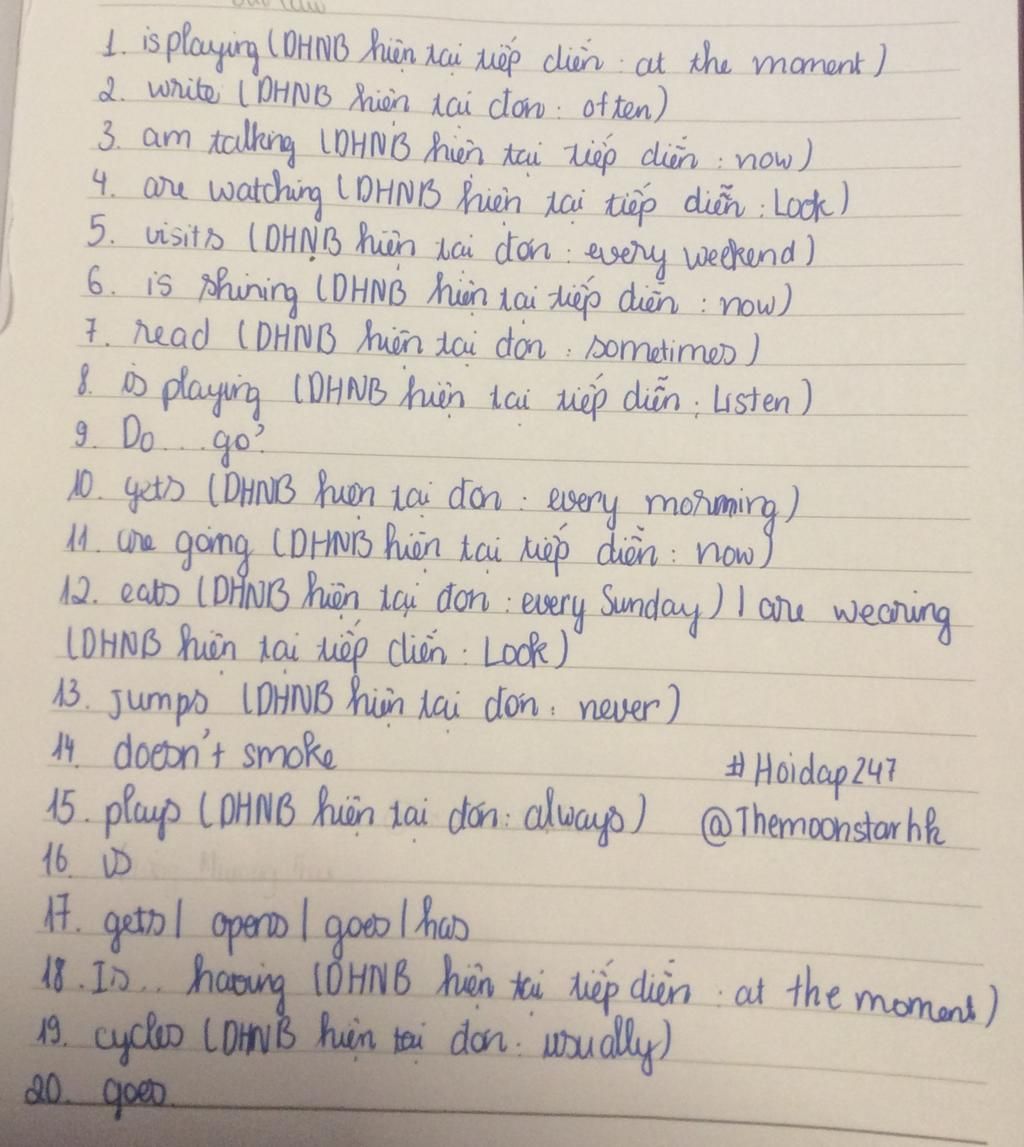 1. is playing (DHNB hiện tại tiếp diễn : at the moment)
2. write (DHNB hiện tại đơn : often)
3. am talking (DHNB hiện tại tiếp diễn : now)
4. are watching (DHNB hiện tại tiếp diễn : Look)
5. visits (DHNB hiện tại đơn : every weekend)
6. is shining (DHNB hiện tại tiếp diễn : now)
7. read (DHNB hiện tại đơn : sometimes)
8. is playing (DHNB hiện tại tiếp diễn : Listen)
9. Do ... go?
10. gets (DHNB hiện tại đơn : every morning)
11. are going (DHNB hiện tại tiếp diễn : now)
12. eats (DHNB hiện tại đơn : every Sunday) | are wearing
(DHNB hiện tại tiếp diễn : Look)
13. jumps (DHNB hiện tại đơn : never)
14. doesn't smoke #Hoidap247
15. plays (DHNB hiện tại đơn : always) @Themoonstarhk
16. is
17. gets | opens | goes | has
18. Is .. having (DHNB hiện tại tiếp diễn : at the moment)
19. cycles (DHNB hiện tại đơn : usually)
20. goes